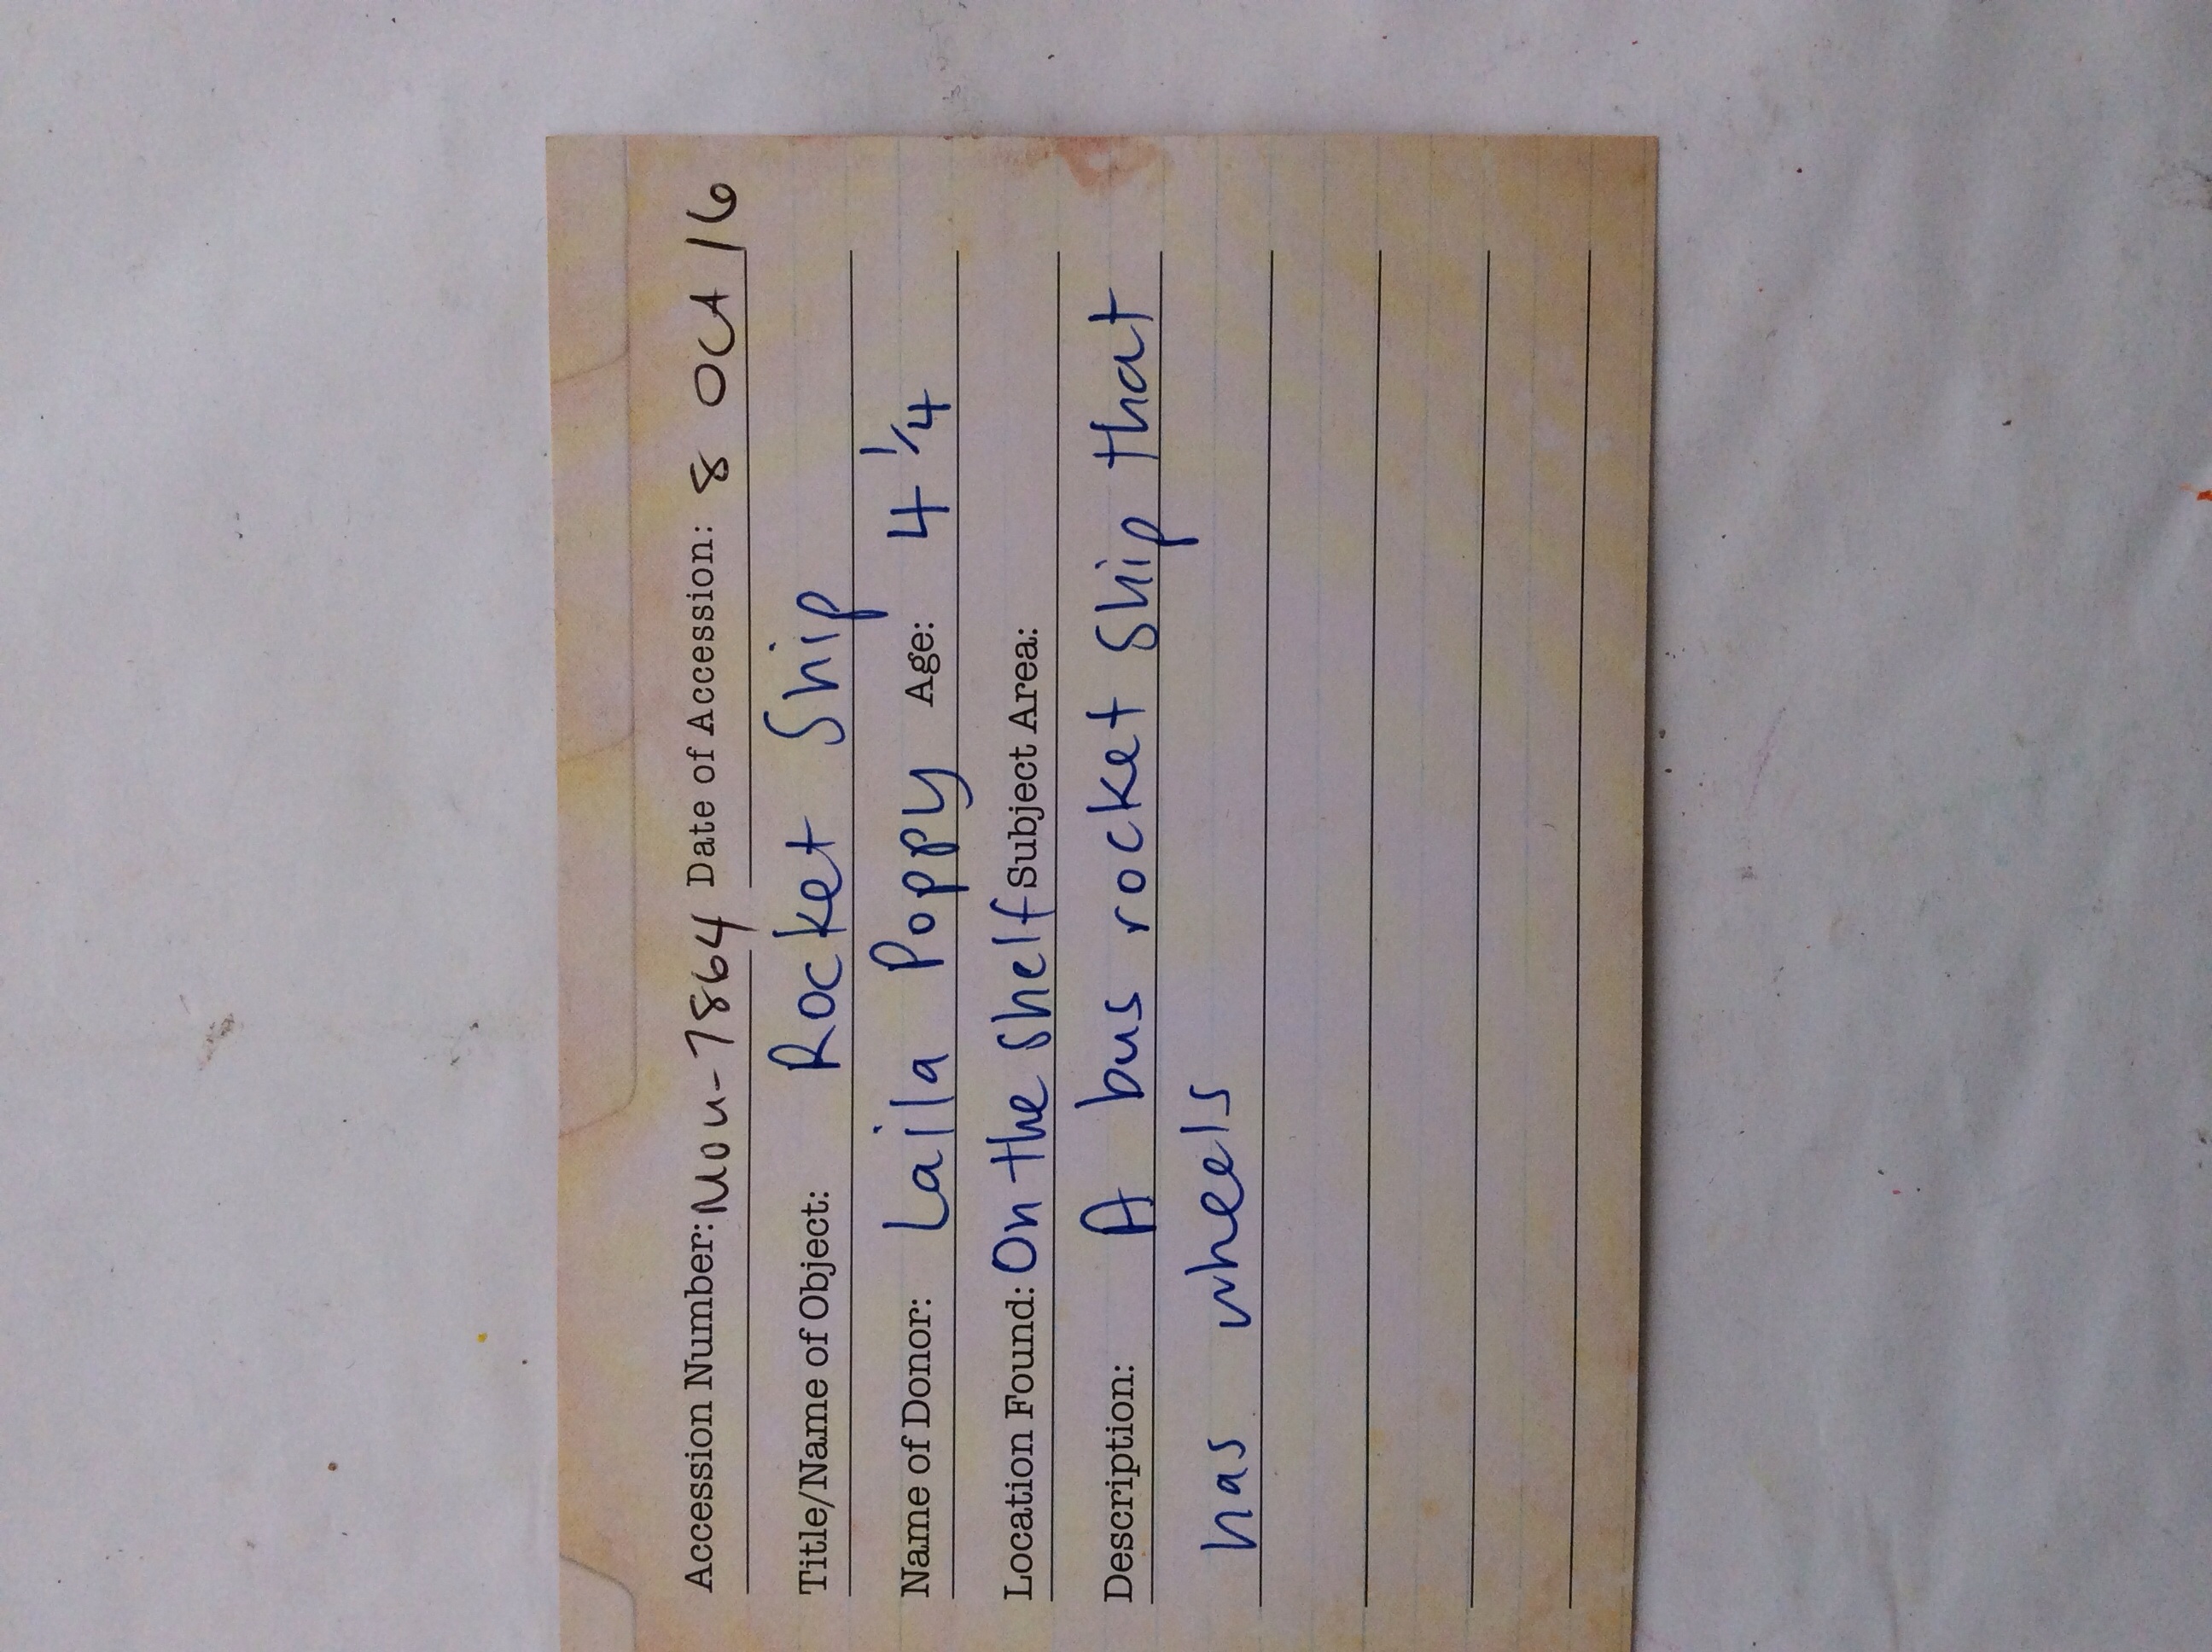 Accession Number: Mou-7864 Date of Accession: 8 Oct 16
Title/Name of Object: Rocket Ship
Name of Donor: Laila Poppy Age: 4 1/4
Location Found: On the Shelf Subject Area:
Description: A bus rocket ship that
has wheels